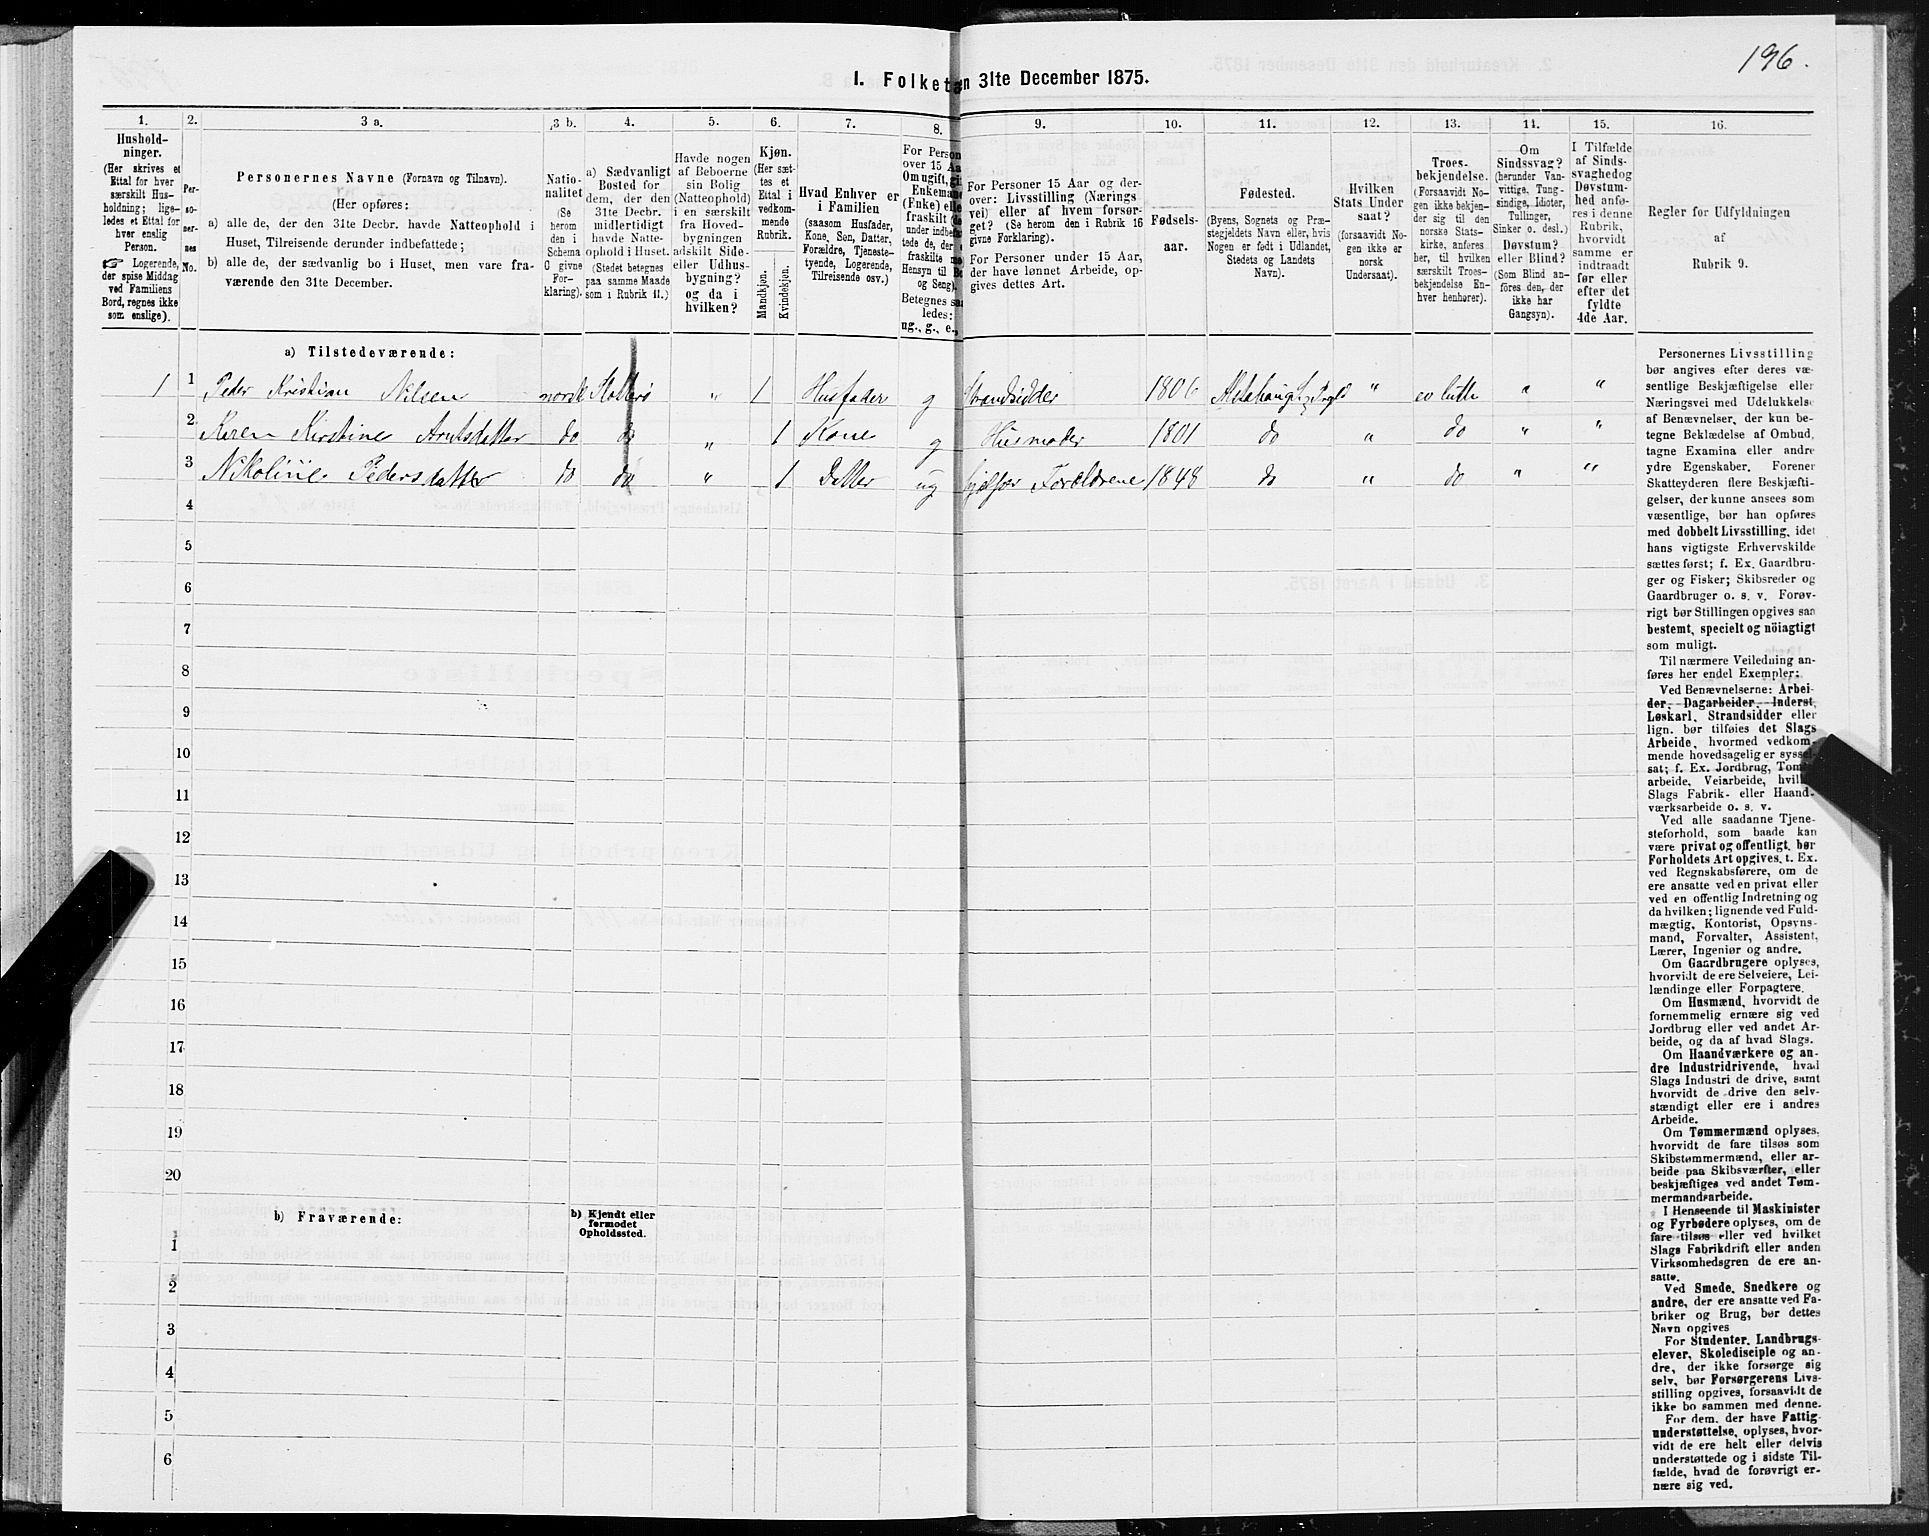 196.
1. Folketæ n 31te December 1875.
1. 2. 3 a. 3 b. 4. 5. 6. 7. 8. 9. 10. 11. 12. 13. 14. 15. 16.
Hushold-
ninger.
(Her skrives et
Ettal for hver
særskilt Hus-
holdning; lige-
ledes et Ettal for
hver enslig
Person.
☞ Logerende,
der spise Middag
ved Familiens
Bord, regnes ikke
som enslige).
Per-
so-
ner-
nes
No.
Personernes Navne (Fornavn og Tilnavn).
(Her opføres:
a) alle de, der den 31te Decbr. havde Natteophold i
Huset, Tilreisende derunder indbefattede;
b) alle de, der sædvanlig bo i Huset, men vare fra-
værende den 31te December.
Natio-
nalitet
(Se
herom
den i
Schema
C givne
For-
klaring).
a) Sædvanligt
Bosted for
dem, der den
31te Decbr.
midlertidigt
havde Natte-
ophold i Huset.
(Stedet betegnes
paa samme Maade
som i Rubrik 11.)
Havde nogen
af Beboerne
sin Bolig
(Natteophold)
i en særskilt
fra Hoved-
bygningen
adskilt Side-
eller Udhus-
bygning?
og da i
hvilken?
Kjøn.
(Her sæt-
tes et
Ettal i
vedkom-
mende
Rubrik.
Mandkjøn.
Kvindekjøn.
Hvad Enhver er
i Familien
(saasom Husfader,
Kone, Søn, Datter,
Forældre, Tjeneste-
tyende, Logerende,
Tilreisende osv.)
For Person
over 15 Aa
Om ugift, gi
Enkeman
(Enke) elle
fraskilt (de
under indbefat
tede de, der e
fraskilte me
Hensyn til Bo
og Seng).
Betegnes saa
ledes:
ug., g., e.,
For Personer 15 Aar og der-
over: Livsstilling (Nærings
vei) eller af hvem forsør-
get? (Se herom den i Rubrik 16
givne Forklaring).
For Personer under 15 Aar,
der have lønnet Arbeide, op-
gives dettes Art.
Fødsels-
aar.
Fødested.
(Byens, Sognets og Præ-
stegjeldets Navn eller, hvis
Nogen er født i Udlandet,
Stedets og Landets
Navn).
Hvilken
Stats Under
saat?
(forsaavidt No-
gen ikke er
norsk
Undersaat).
Troes-
bekjendelse.
(Forsaavidt No-
gen ikke bekjen-
der sig til den
norske Stats-
kirke, anføres
her, til hvilken
særskilt Troes-
bekjendelse En-
hver henhører).
Om
Sindssvag?
(herunder Van-
vittige, Tung-
sindige, Idioter,
Tullinger,
Sinker o. desl.)
Døvstum?
eller Blind?
(Som Blind an-
føres den, der
ikke har
Gangsyn).
I Tilfælde
af Sinds-
svaghed og
Døvstum-
hed anfø-
res i denne
Rubrik,
hvorvidt
samme er
indtraadt
før eller
efter det
fyldte
4de Aar.
Regler for Udfyldningen
af
Rubrik 9.
a) Tilstedeværende:
1 1 Peder Kristian Nilsen norsk " 1 Husfader g Strandsidder 1806 " ev luth " "
2 Karen Kirstine Arntsdatter do do " 1 Kone g Husmoder 1801 do " do " "
3 Nikoline Pedersdatter do do " 1 Datter ug hjælper Forældrene 1848 do " do " "
4
5
6
7
8
9
10
11
12
13
14
15
16
17
18
19
20
b) Fraværende:
b) Kjendt eller
formodet
Opholdssted.
1
2
3
4
5
6
Personernes Livsstilling
bør angives efter deres væ-
sentlige Beskjæftigelse eller
Næringsvei med Udelukkelse
af Benævnelser, der kun be-
tegne Beklædelse af Ombud,
tagne Examina eller andre
ydre Egenskaber. Forener
Skatteyderen flere Beskjæfti-
gelser, der kunne ansees som
væsentlige, bør han opføres
med dobbelt Livsstilling, idet
hans vigtigste Erhvervskilde
sættes først; f. Ex. Gaardbru-
ger og Fisker; Skibsreder og
Gaardbruger o. s. v. Forøv-
rigt bør Stillingen opgives saa
bestemt, specielt og nöiagtigt
som muligt.
Til nærmere Veiledning an-
føres her endel Exempler:
Ved Benævnelserne: Arbei-
der, Dagarbeider, Inderst,
Løskarl, Strandsidder eller
lign. bør tilføies det Slags
Arbeide, hvormed vedkom-
mende hovedsagelig er syssel-
sat; f. Ex. Jordbrug, Tom
arbeide, Veiarbeide, hvil
Slags Fabrik- eller Haand-
værksarbeide o. s. v.
Ved alle saadanne Tjene-
steforhold, som baade kan
være privat og offentligt, bør
Forholdets Art opgives, t. Ex.
ved Regnskabsførere, om de
ere ansatte ved en privat eller
ved en offentlig Indretning og
da hvilken; lignende ved Fuld-
mægtig, Kontorist, Opsyns-
mand, Forvalter, Assistent,
Lærer, Ingeniør og andre.
Om Gaardbrugere oplyses,
hvorvidt de ere Selveiere, Lei-
lændinge eller Forpagtere.
Om Husmænd, hvorvidt de
fornemmelig ernære sig ved
Jordbrug eller ved andet Ar-
beide, og da af hvad Slags.
Om Haandværkere og an-
dre Industridrivende, hvad
Slags Industri de drive, samt
hvorvidt de drive den selv-
stændigt eller ere i andres
Arbeide.
Om Tømmermænd oplyses,
hvorvidt de fare tilsøs som
Skibstømmermænd, eller ar-
beide paa Skibsværfter, eller
beskjæftiges ved andet Tøm-
mermandsarbeide.
I Henseende til Maskinister
og Fyrbødere oplyses, om de
fare tilsøs eller ved hvilket
Slags Fabrikdrift eller anden
Virksomhedsgren de ere an-
satte.
Ved Smede, Snedkere og
andre, der ere ansatte ved Fa-
briker og Brug, bør dettes
Navn opgives
For Studenter, Landbrugs-
elever, Skoledisciple og an-
dre, der ikke forsørge sig
selv, bør Forsørgerens Livs-
stilling opgives, forsaavidt de
ikke bo sammen med denne.
For dem, der have Fattig-
understøttelse, oplyses, hvor-
vidt de ere helt eller delvis
understøttede og i sidste Til-
fælde, hvad de forøvrigt er-
nære sig ved.